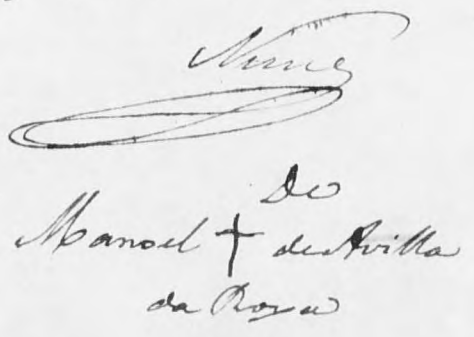 Nunes
De
Manoel † de Avilla
da Roza